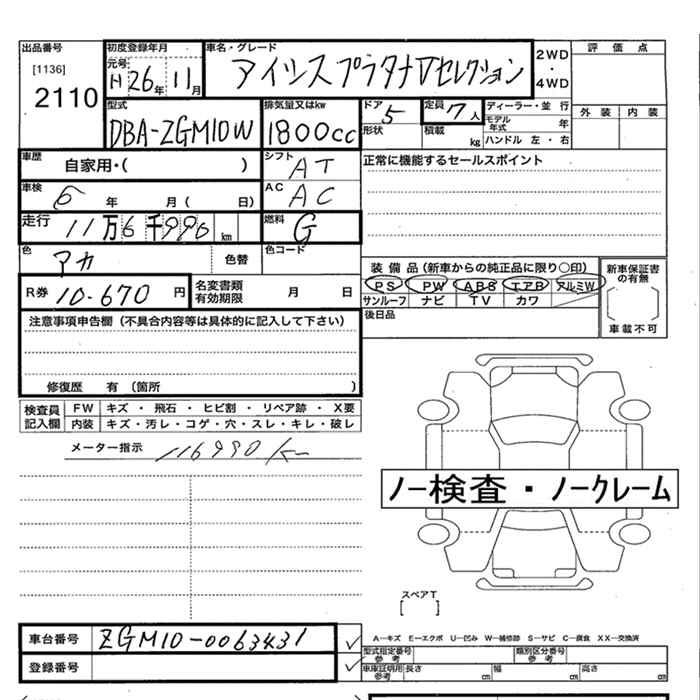 出品番号
[1136]
2110
初度登録年月
元号 H 26年 11月
車名・グレード
アイシス プラタナ Vセレクション
2WD
・
4WD
評価点
外装 内装
型式
DBA-ZGM10W
排気量又はkw
1800cc
ドア 5
形状
定員 7人
積載 kg
ディーラー・並行
モデル年式 年
ハンドル 左・右
車歴 自家用・( )
シフト AT
正常に機能するセールスポイント
車検 6年 月( 日)
AC AC
走行 11万6千990km
燃料 G
色 アカ 色替
色コード
R券 10-670円
名変書類有効期限 月 日
装備品(新車からの純正品に限り○印)
PS PW ABS エアB アルミW
サンルーフ ナビ TV カワ
後日品
新車保証書の有無
車載不可
注意事項申告欄(不具合内容等は具体的に記入して下さい)
修復歴 有(箇所 )
検査員記入欄
FW キズ・飛石・ヒビ割・リペア跡・X要
内装 キズ・汚レ・コゲ・穴・スレ・キレ・破レ
メーター指示 116990k
ノー検査・ノークレーム
スペアT
[ ]
車台番号 ZGM10-0063431
登録番号
A―キズ E―エクボ U―凹み W―補修跡 S―サビ C―腐食 XX―交換済
型式指定番号参考
類別区分番号参考
車庫証明用参考 長さ cm 幅 cm 高さ cm